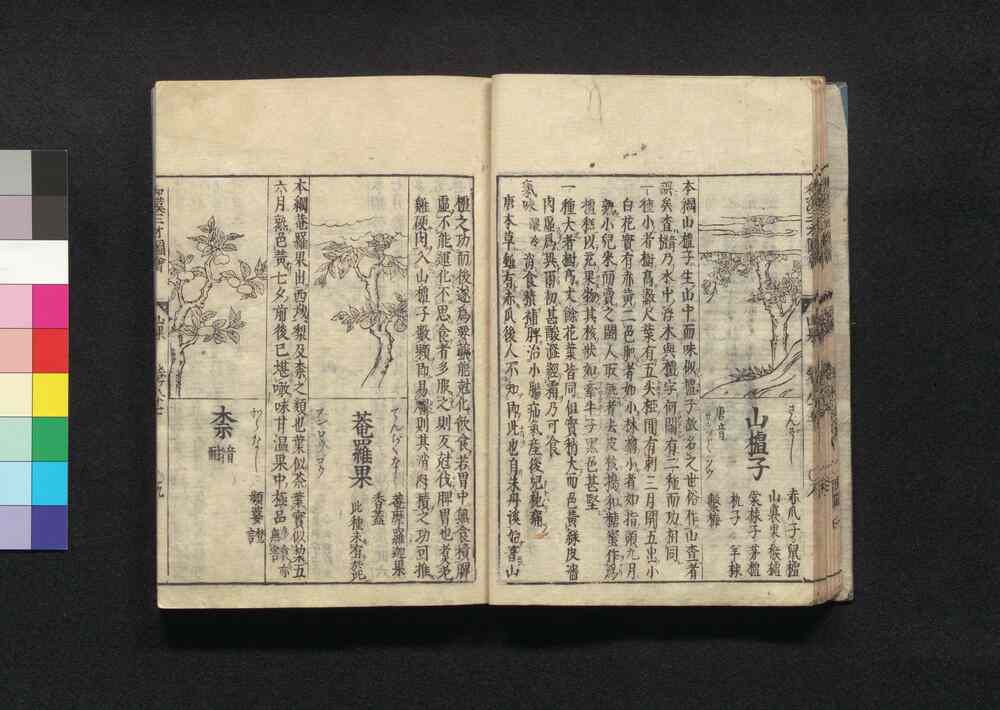 山樝子
さんざし
唐音
赤爪子 鼠樝
山裏果 猴樝
棠梂子 茅樝
杭子 羊梂
繫梅
本綱山樝子生山中而味似樝子故名之世俗作山査者
誤矣査搓乃水中浮木與樝字何關有二種而功相同
一種小者樹高數尺葉有五尖椏間有刺三月開五出小
白花實有赤黃二色肥者如小林檎小者如指頭九月
熟小兒采而賣之閩人取熟者去皮核擣和糖蜜作爲
樝糕以充果物其核狀如牽牛子黑色甚堅
一種大者樹高丈餘花葉皆同但實稍大而色黃綠皮濇
肉虛爲異爾初甚酸濇經霜乃可食
氣味 消食積補脾治小腸疝氣產後兒枕痛
唐本草雖有赤爪後人不知即此也自朱丹溪始著山
樝之功而後遂爲要藥能尅化飲食若胃中無食積脾
虛不能運化不思食者多服之則反尅伐脾胃也煮老
雞硬肉入山樝子數顆即易爛則其消肉積之功可推
菴羅果
てんぢくなし
アンロウクハウ
菴摩羅迦果
香蓋
此種未有詑
本綱菴羅果出西域梨及柰之類也葉似茶葉實似梨五
六月熟色黃七夕前後已堪噉味甘溫果中極品
柰
音耐
頻婆